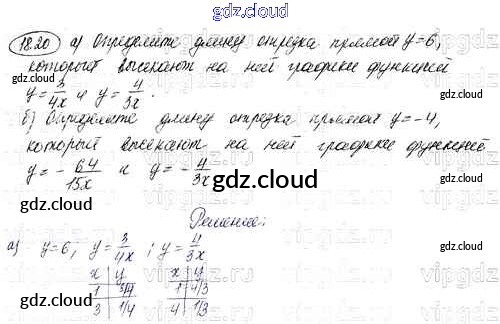 gdz.cloud
18.20 а) Определите длину отрезка прямой y=6,
gdz.cloud
который высекают на ней графики функций
y=3/4x и y=4/3x.
б) Определите длину отрезка прямой y=-4,
который высекают на ней графики функций
y=-64/15x и y=-4/3x
gdz.cloud
Решение:
а) y=6; y=3/4x; y=4/3x
x | y x | y
1 | 3/4 1 | 4/3
3 | 1/4 4 | 1/3
gdz.cloud
gdz.cloud